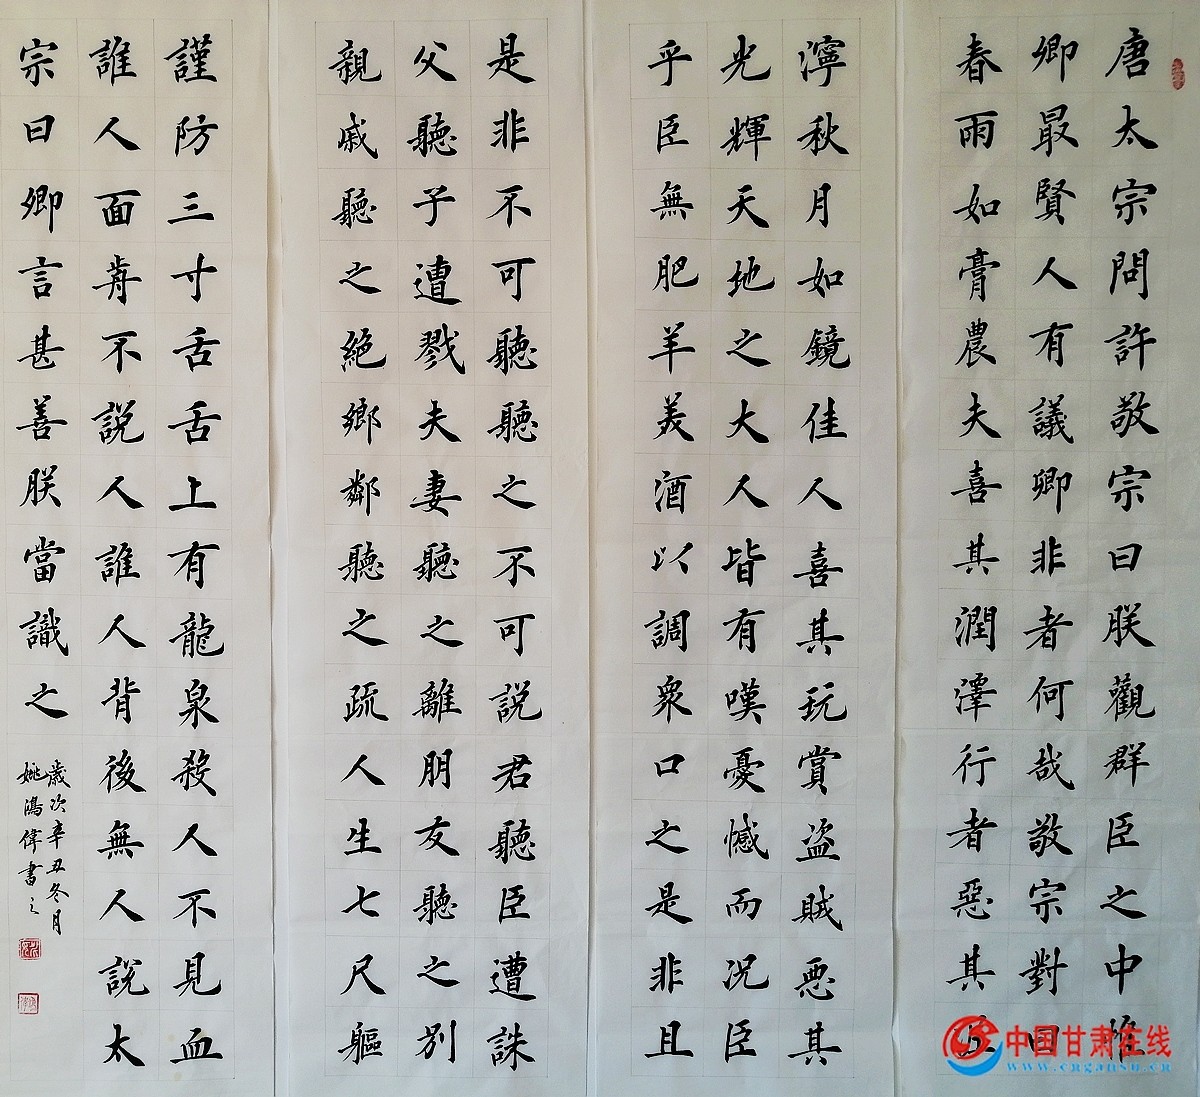 唐太宗問許敬宗曰朕觀群臣之中惟
卿最賢人有議卿非者何哉敬宗對曰
春雨如膏農夫喜其潤澤行者惡其
濘秋月如鏡佳人喜其玩賞盜賊惡其
光輝天地之大人皆有嘆憂憾而況臣
乎臣無肥羊美酒以調衆口之是非且
是非不可聽聽之不可說君聽臣遭誅
父聽子遭戮夫妻聽之離朋友聽之別
親戚聽之絕鄉鄰聽之疏人生七尺軀
謹防三寸舌舌上有龍泉殺人不見血
誰人面前不說人誰人背後無人說太
宗曰卿言甚善朕當識之
歲次辛丑冬月
姚鴻偉書之
中国甘肃在线
www.cngansu.cn